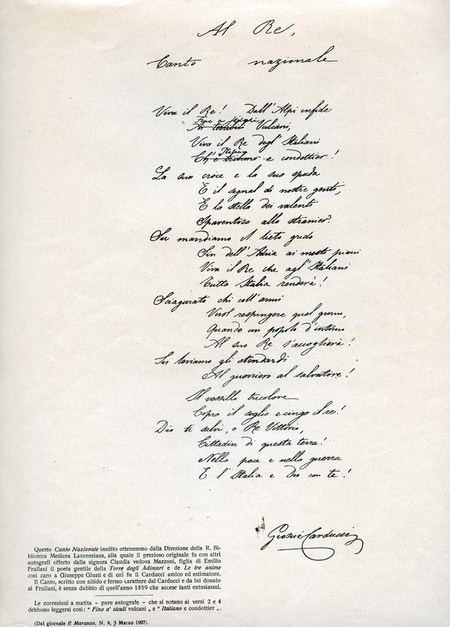 Al Re,
Canto nazionale
Viva il Re! Dall'Alpi infide
Fino a' siculi
Ai Vulcani,
Viva il Re degl'Italiani
Italiano
Ch'è e condottier!
La sua croce e la sua spada
È il segnal di nostre genti,
È la stella dei valenti
Spaventosa allo stranier.
Su mandiamo il lieto grido
Sin dell'Adria ai mesti piani
Viva il Re che agl'Italiani
Tutta Italia renderà!
Sciagurato chi coll'armi
Vuol respingere quel giorno,
Quando un popolo d'intorno
Al suo Re s'accoglierà!
Su leviamo gli stendardi
Al guerriero al salvatore!
Il vessillo tricolore
Copra il soglio e cinga il re!
Dio ti salvi, o Re Vittorio,
Cittadin di questa terra!
Nella pace e nella guerra
È l'Italia e Dio con te!
Giosuè Carducci
Questo Canto Nazionale inedito ottenemmo dalla Direzione della R. Bi-
blioteca Medicea Laurenziana, alla quale il prezioso originale fu con altri
autografi offerto dalla signora Claudia vedova Mazzoni, figlia di Emilio
Frullani il poeta gentile della Torre degli Adinari e de Le tre anime
così caro a Giuseppe Giusti e di cui fu il Carducci amico ed estimatore.
Il Canto, scritto con nitido e fermo carattere dal Carducci e da lui donato
al Frullani, è senza dubbio di quell'anno 1859 che accese tanti entusiasmi.
Le correzioni a matita - pure autografe - che si notano ai versi 2 e 4
debbono leggersi così: « Fino a' siculi vulcani », e « Italiano e condottier ».
(Dal giornale Il Marzocco, N. 9, 3 Marzo 1907).